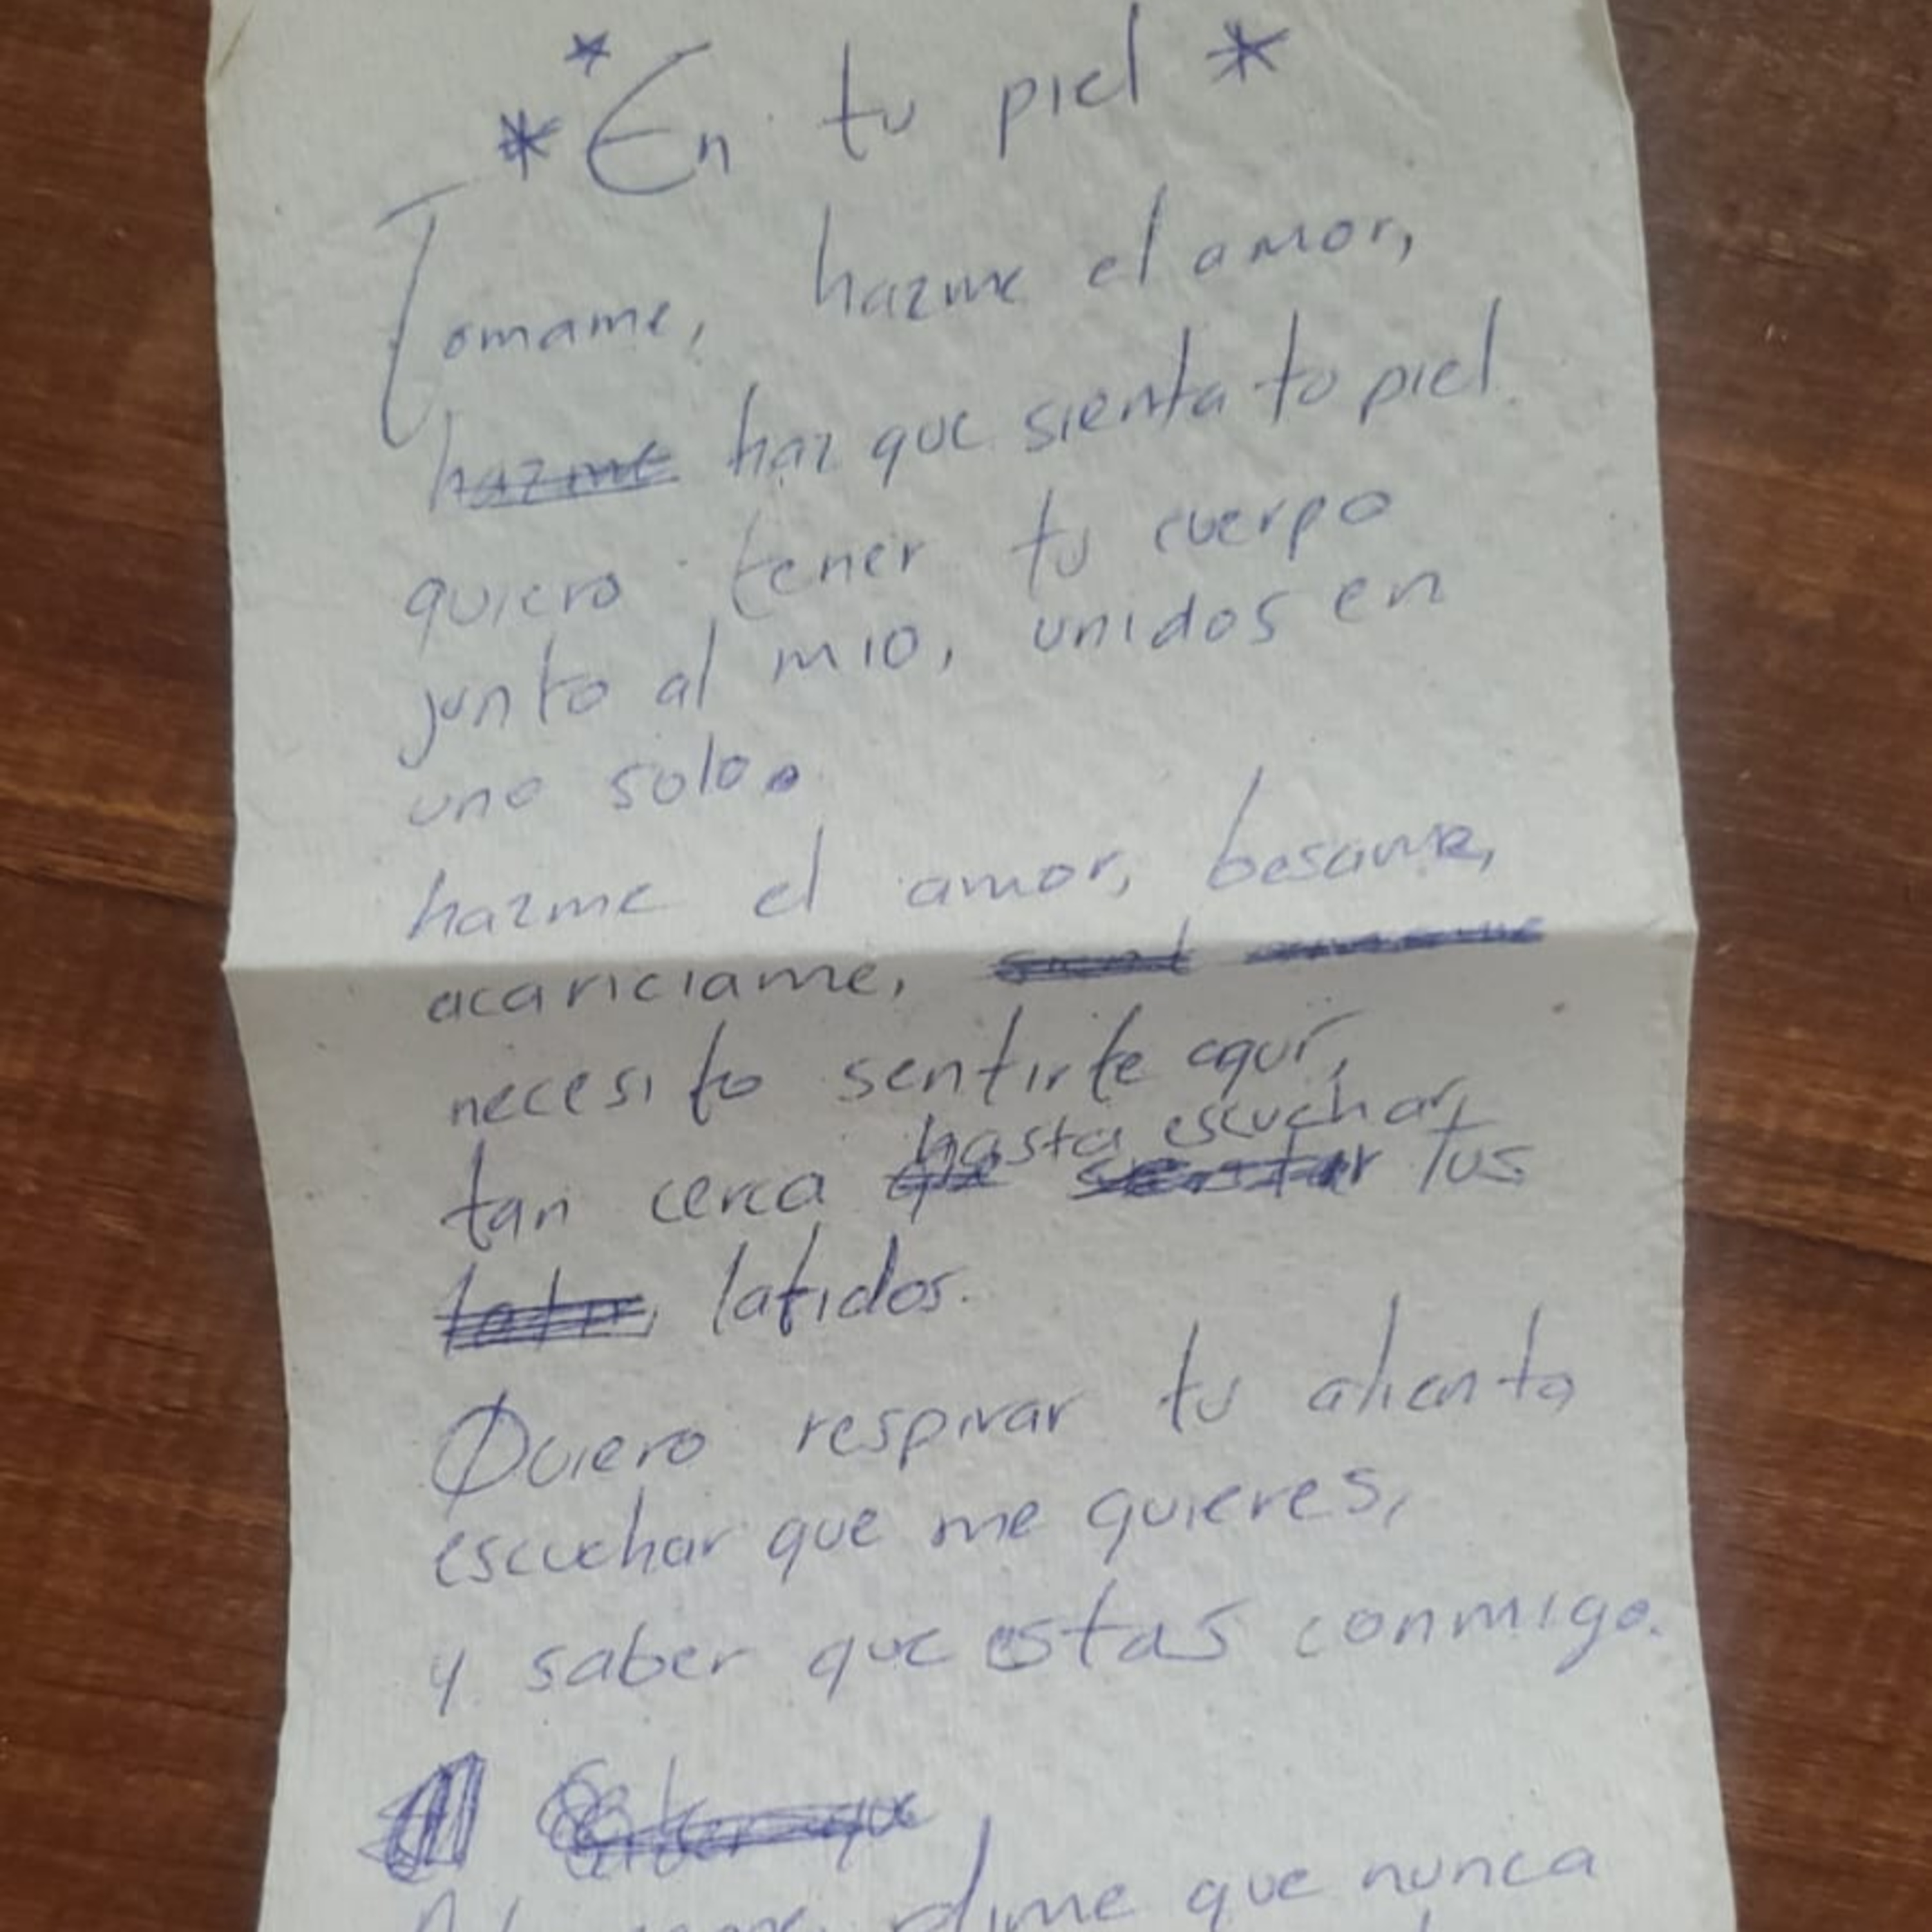 * En tu piel *
Tomame, hazme el amor,
hazme haz que sienta tu piel.
quiero tener tu cuerpo
junto al mio, unidos en
uno solo.
hazme el amor, besame,
acariciame,
necesito sentirte aquí,
hasta escuchar
tan cerca sentir tus
latir, latidos.
Quiero respirar tu aliento,
escuchar que me quieres,
y saber que estas conmigo.
Saber que
dime que nunca